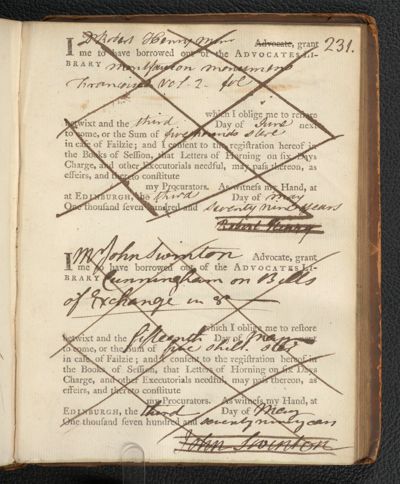 231.
I Dr Robert Henry Advocate, grant
me to have borrowed out of the ADVOCATES LI-
BRARY Montfaucon monumens
Francoise Vol. 2. fol
which I oblige me to restore
betwixt and the third Day of June next
to come, or the Sum of five pounds sterl
in case of Failzie; and I consent to the registration hereof in
the Books of Session, that Letters of Horning on six Days
Charge, and other Executorials needful, may pass thereon, as
effeirs, and thereto constitute
my Procurators. As witness my Hand, at
at EDINBURGH, the third Day of May
One thousand seven hundred and seventy nine years
Robert Henry
I Mr John Swinton Advocate, grant
me to have borrowed out of the ADVOCATES LI-
BRARY Cunningham on Bills
of Exchange in 8o
which I oblige me to restore
betwixt and the fifteenth Day of May next
to come, or the Sum of five shill. sterl
in case of Failzie; and I consent to the registration hereof in
the Books of Session, that Letters of Horning on six Days
Charge, and other Executorials needful, may pass thereon, as
effeirs, and thereto constitute
my Procurators. As witness my Hand, at
EDINBURGH, the third Day of May
One thousand seven hundred and seventy nine years
John Swinton